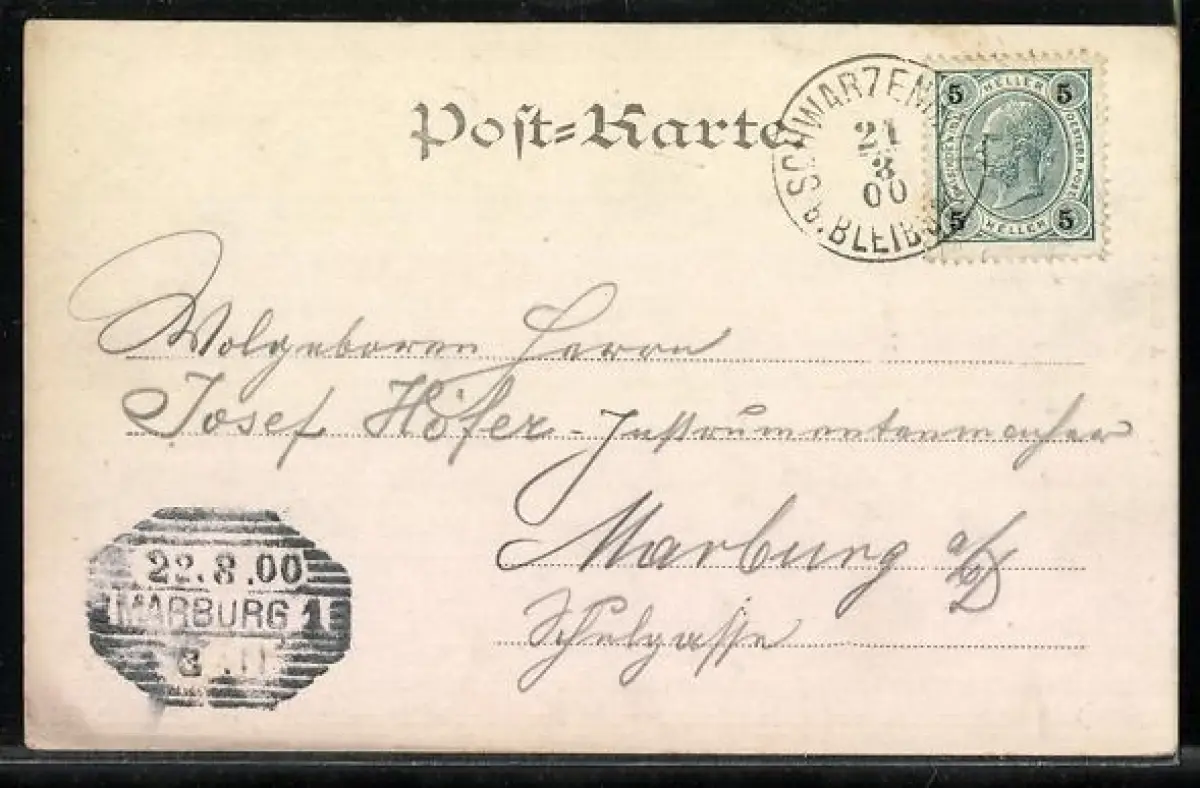 Post-Karte
SCHWARZEN
21
8
00
b. BLEIB
5 HELLER 5
OESTERR. POST
5 HELLER 5
Wolgeboren Herrn
Josef Höfer - Instrumentenmacher
Marburg a/D
Schulgasse
22.8.00
MARBURG 1